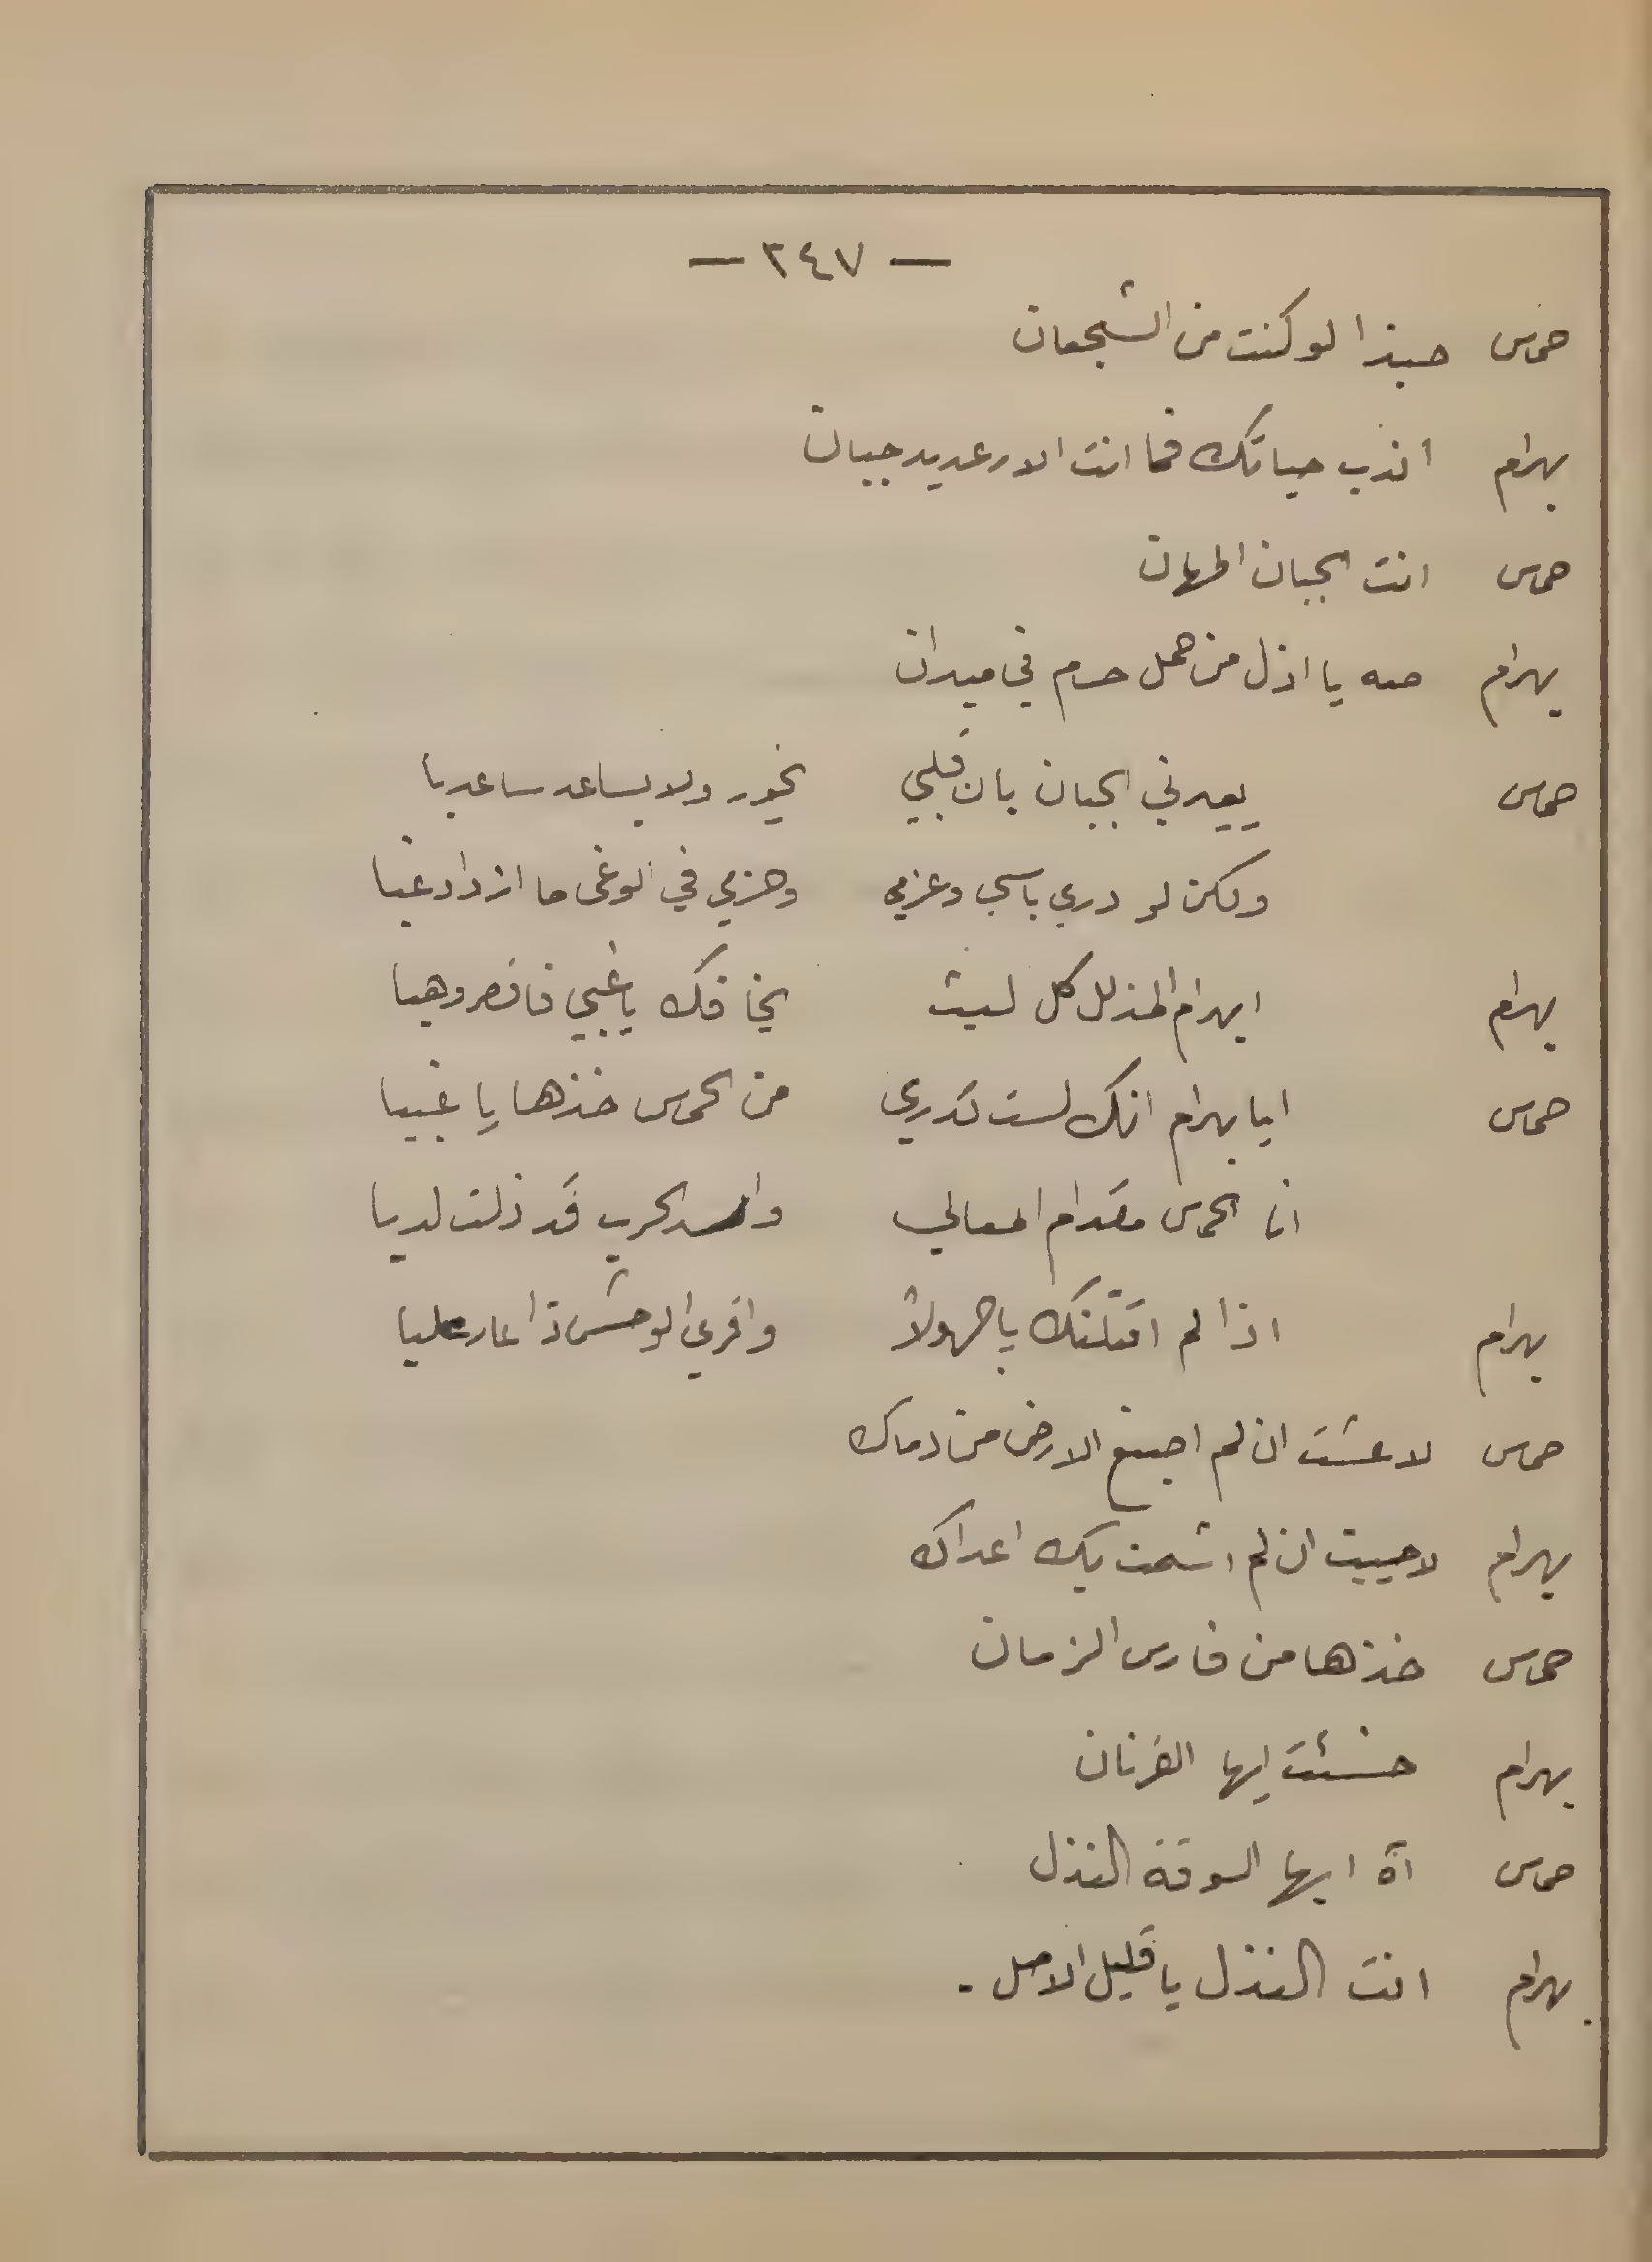 — ٢٤٧ —
حماس حبذا لو كنت من الشجعان
بهرام اندب حياتك فما انت الا رعديد جبان
حماس انت الجبان المهان
بهرام صه يا اذل من همل حام في ميدان
حماس يعيرني الجبان بان قلبي يخور ولا يساعد ساعديا
ولكن لو دري باسي وعزمي وهزمي في الوغى ما ازداد غيا
بهرام ابهرام المذلل كل ليث يخافك يا غبي فاقصر وهيا
حماس ايا بهرام انك لست تدري من الحماس خذها يا غبيا
انا الحماس مقدام المعالي واسد الحرب قد ذلت لديا
بهرام اذا لم اقتلنك يا جهولاً واقري الوحش ذا عار عليا
حماس لا عشت ان لم اصبغ الارض من دماك
بهرام لا حييت ان لم اشمت بك اعداك
حماس خذها من فارس الزمان
بهرام خسئت ايها القرنان
حماس آه ايها السوقة النذل
بهرام انت النذل يا قليل الاصل .